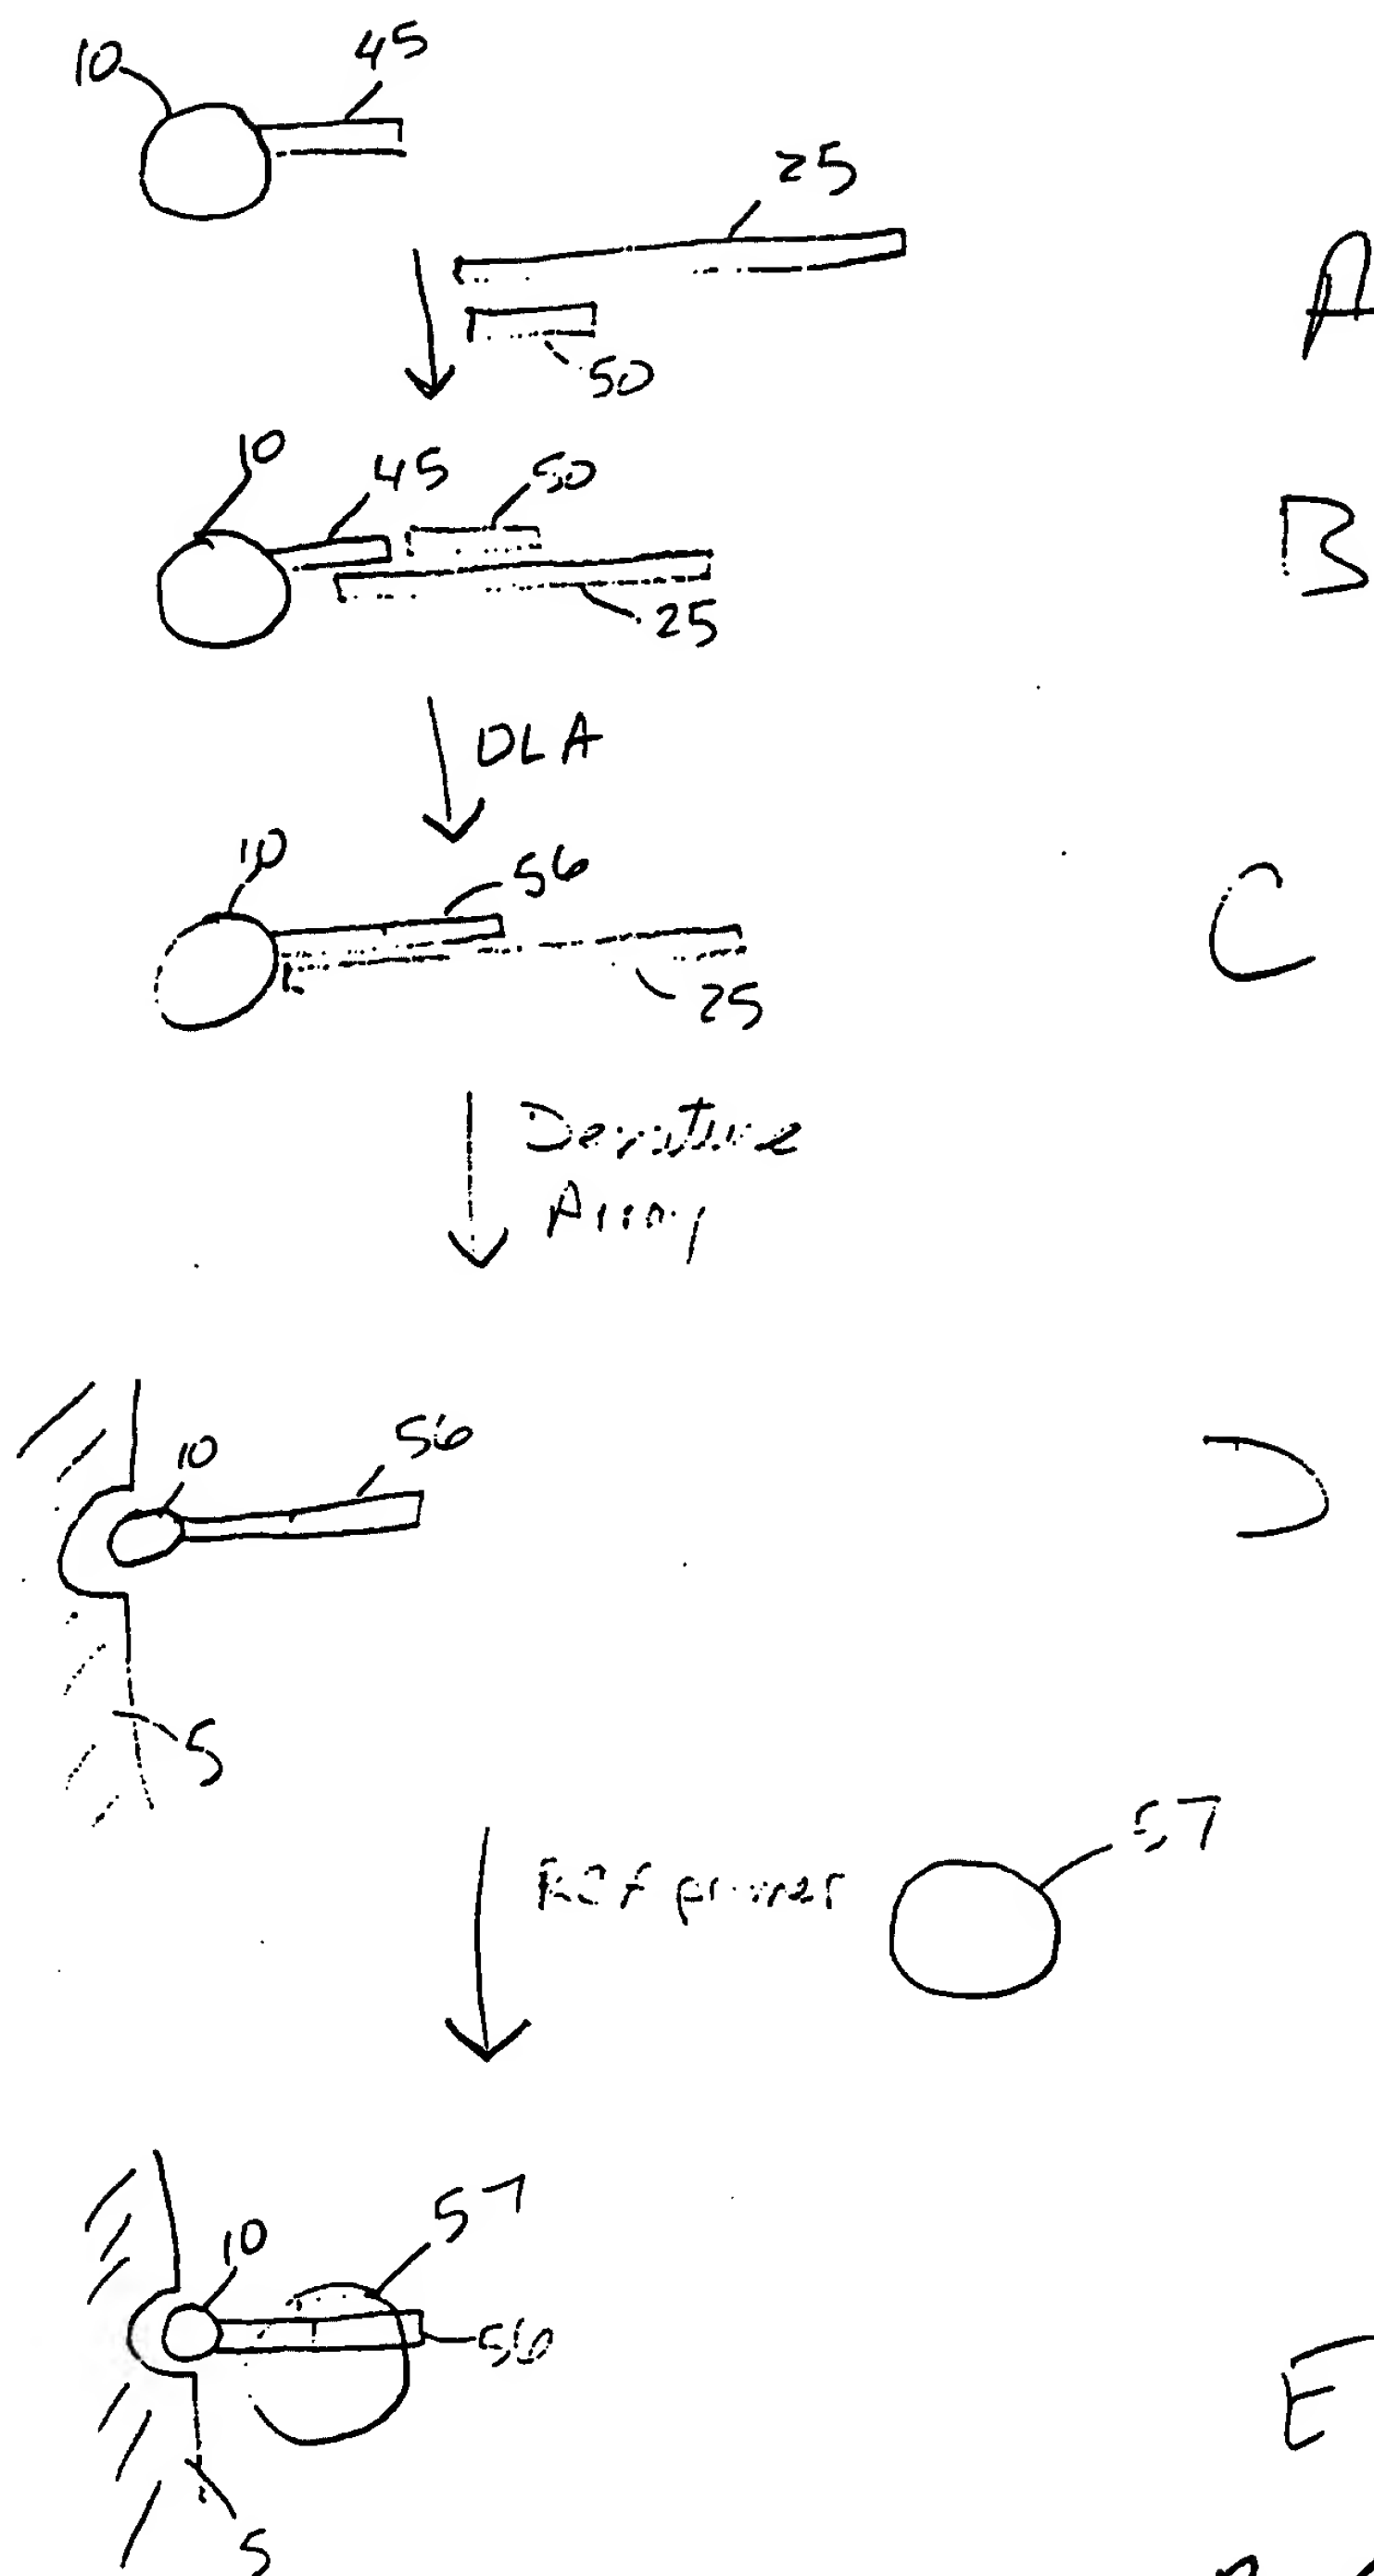 10 45
25
A
50
10 45 50
B
25
DLA
10 56
C
25
Denature
Array
10 56
D
5
57
primer
57
10
56
E
5